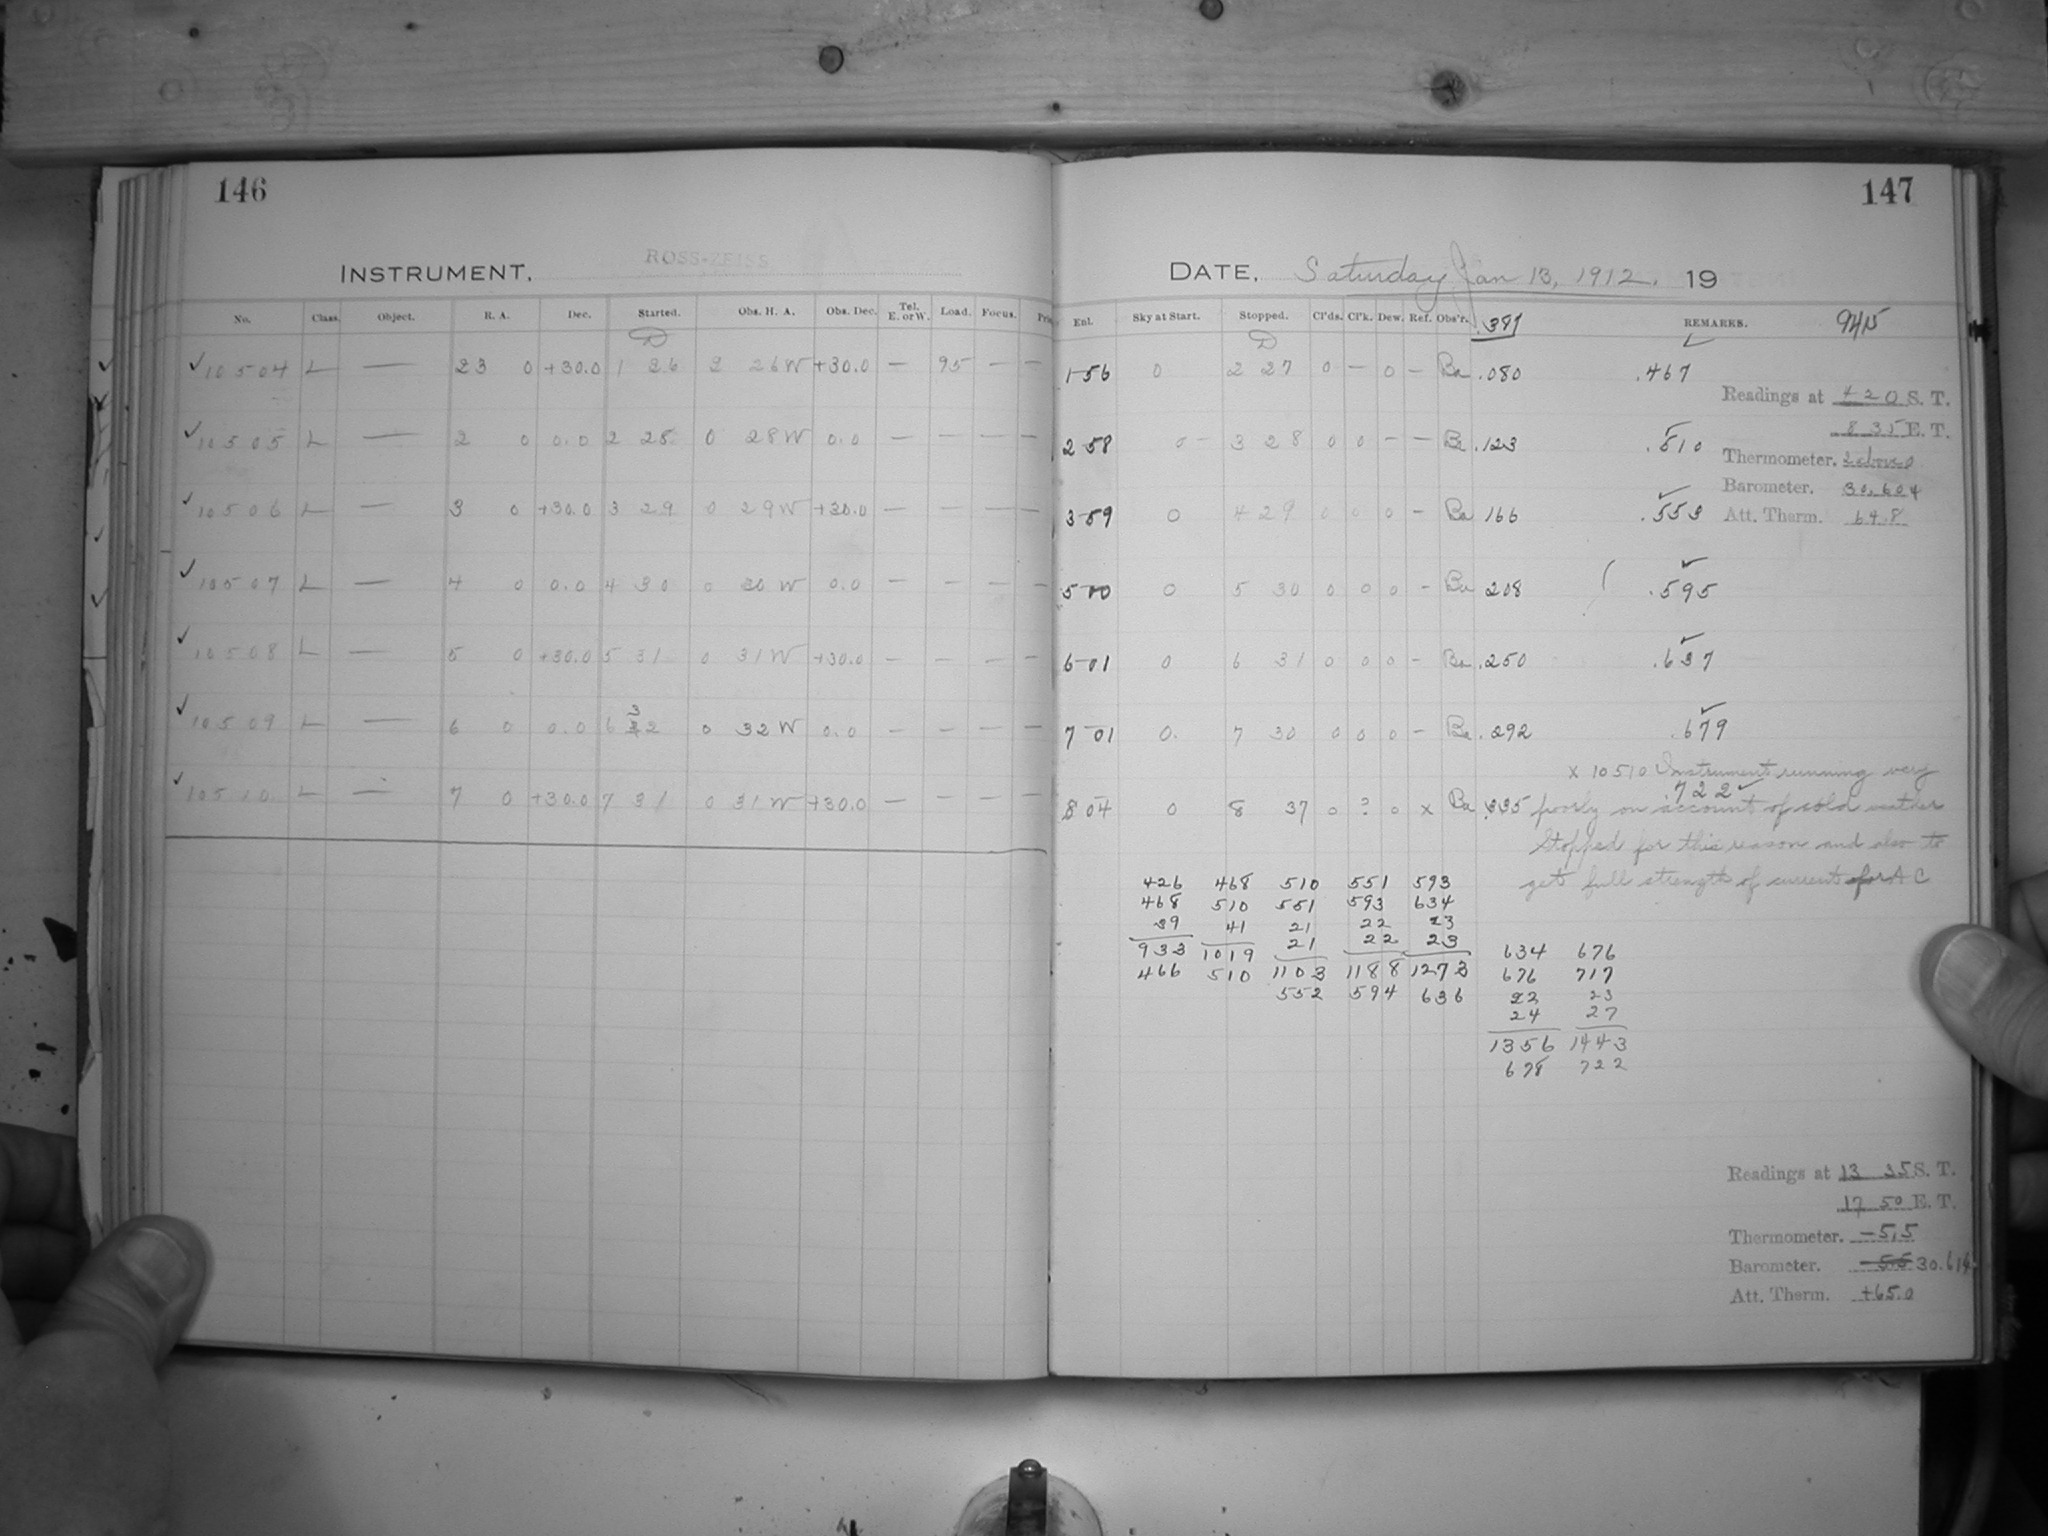 146
INSTRUMENT. ROSS-ZEISS
No. Class. Object. R. A. Dec. Started. Obs. H. A. Obs. Dec. Tel. E. or W. Load. Focus.
D
10504 L — 23 0 +30.0 1 26 2 26W +30.0 — 95 — —
10505 L — 2 0 0.0 2 28 0 28W 0.0 — — — —
10506 L — 3 0 +30.0 3 29 0 29W +30.0 — — — —
10507 L — 4 0 0.0 4 30 0 30W 0.0 — — — —
10508 L — 5 0 +30.0 5 31 0 31W +30.0 — — — —
10509 L — 6 0 0.0 6 32 0 32W 0.0 — — — —
10510 L — 7 0 +30.0 7 31 0 31W +30.0 — — — —
147
DATE. Saturday Jan 13, 1912. 19
Enl. Sky at Start. Stopped. Cl'ds. Cl'k. Dew. Ref. Obs'r. .387 REMARKS.
D
1 56 0 2 27 0 — 0 — Ba .080 .467
Readings at 4 20 S. T.
8 35 E. T.
2 58 0 – 3 28 0 0 — — Ba .123 .510
Thermometer. 2 above 0
Barometer. 30.604
3 59 0 4 29 0 0 0 – Ba 166 .553
Att. Therm. 64.8
5 00 0 5 30 0 0 0 – Ba 208 .595
6 01 0 6 31 0 0 0 – Ba .250 .637
7 01 0. 7 30 0 0 0 – Ba .292 .679
x 10510 Instrument running very
.722
8 04 0 8 37 0 ? 0 x Ba .335 poorly on account of cold weather
Stopped for this reason and also to
get full strength of current for A C
426 468 510 551 593
468 510 551 593 634
39 41 21 22 23
21 22 23
933 1019 1103 1188 1273
466 510 552 594 636
634 676
676 717
22 23
24 27
1356 1443
678 722
Readings at 13 35 S. T.
17 50 E. T.
Thermometer. –5.5
Barometer. –5.5 30.614
Att. Therm. +65.0